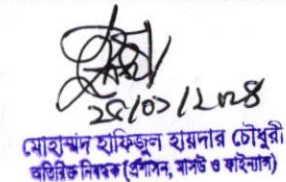 ২৫/০১/২০২৪
মোহাম্মদ হাফিজুল হায়দার চৌধুরী
অতিরিক্ত নিবন্ধক (প্রশাসন, মাসউ ও ফাইন্যান্স)